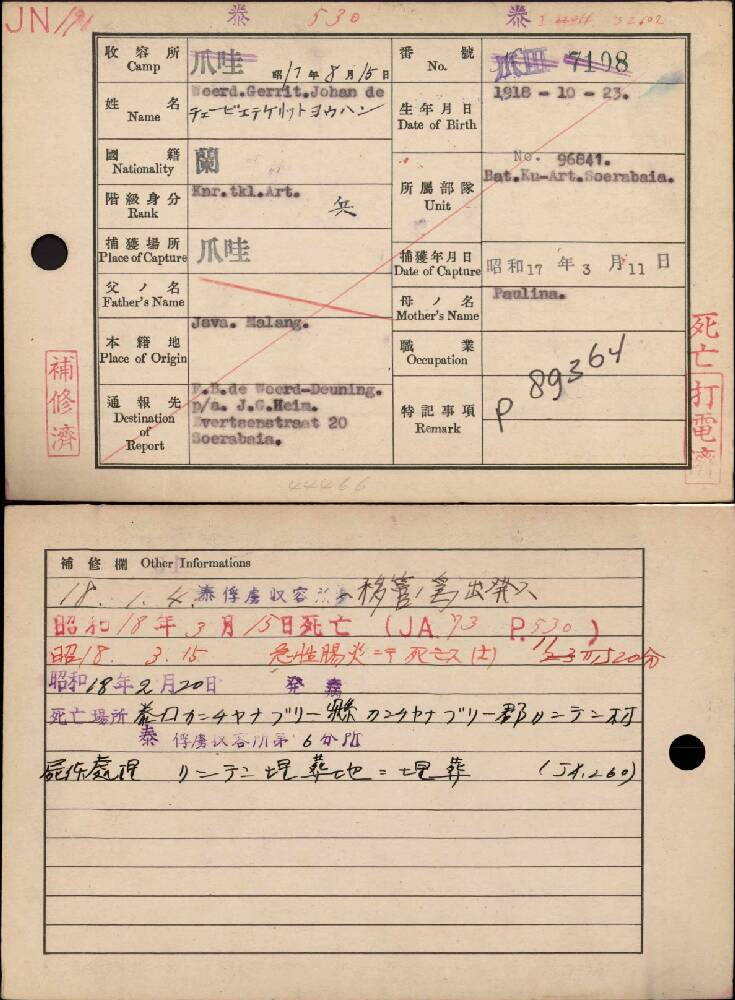 JN 泰 530 泰
收容所 Camp 爪哇 昭17年8月15日
番號 No. 爪III 7108
姓名 Name Woerd.Gerrit.Johan de
生年月日 Date of Birth 1918 - 10 - 23.
國籍 Nationality 蘭
所屬部隊 Unit No. 96841.
Bat.Ku-Art.Soerabaia.
階級身分 Rank Knr.tkl.Art. 兵
捕獲場所 Place of Capture 爪哇
捕獲年月日 Date of Capture 昭和17年3月11日
父ノ名 Father's Name
母ノ名 Mother's Name Paulina.
本籍地 Place of Origin Java. Malang.
職業 Occupation
P 89364
通報先 Destination of Report
F.B.de Woerd-Deuning.
p/a. J.G.Heim.
Evertsenstraat 20
Soerabaia.
特記事項 Remark
補修濟
死亡
打電濟
44466
補修欄 Other Informations
18. 1. 4. 泰俘虜収容所ヘ移管ノ為出発ス
昭和18年3月15日死亡 (JA 73 P.530)
昭18. 3.15 急性腸炎ニテ死亡ス
昭和18年2月20日 発病
死亡場所 泰国カンチヤナブリー縣カンチヤナブリー郡リンテン村
泰俘虜収容所第6分所
屍体處理 リンテン埋葬地ニ埋葬 (JA.260)